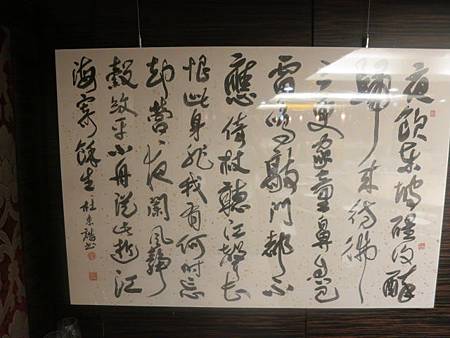 夜飲東坡醒復醉
歸來彷彿
三更家童鼻息已
雷鳴敲門都不
應倚杖聽江聲長
恨此身非我有何時忘
却營營夜闌風靜
縠紋平小舟從此逝江
海寄餘生